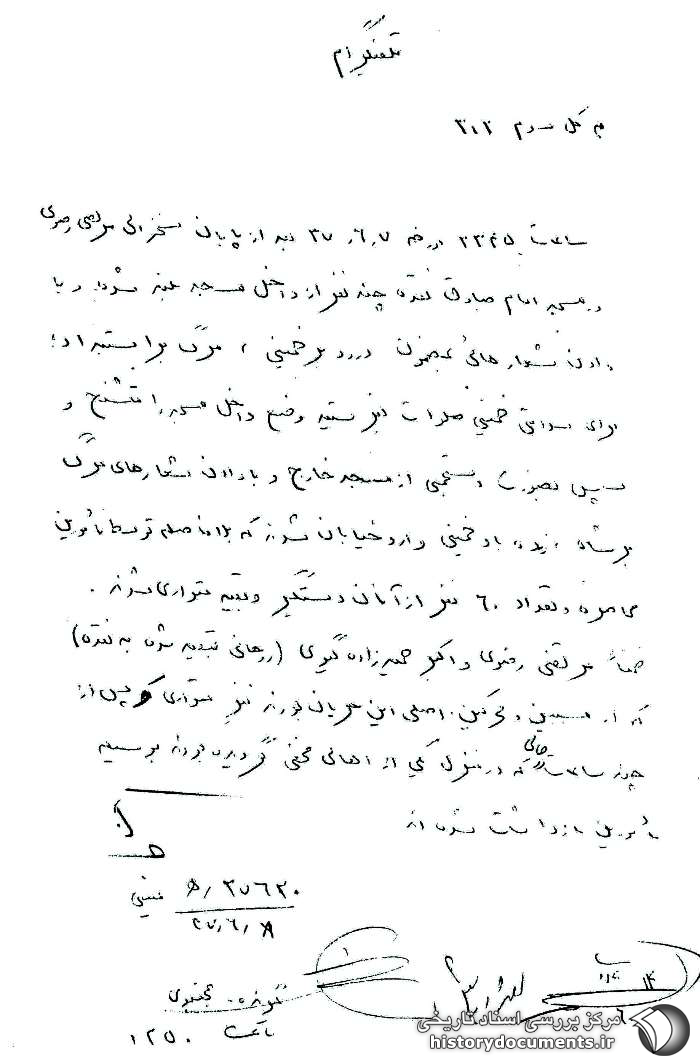 تلفنگرام
به کل سوم ۳۱۲
ساعت ۲۲۴۵ مورخه ۳۷/۶/۷ بعد از پایان سخنرانی مرتضی رضوی
در مسجد امام صادق نقده چند نفر از داخل مسجد بلند شده و با
دادن شعارهائی بمضمون درود بر خمینی، مرگ بر استبداد؛
برای سلامتی خمینی صلوات بفرستید وضع داخل مسجد را متشنج و
سپس بصورت دستجمعی از مسجد خارج و با دادن شعارهای مرگ
بر شاه، زنده باد خمینی وارد خیابان شدند که بلافاصله توسط مأمورین
محاصره و تعداد ۶۰ نفر از آنان دستگیر و بقیه متواری شدند.
ضمناً مرتضی رضوی و اکبر حمیدزاده گیوی (روحانی تبعید شده به نقده)
که از مسببین و محرکین اصلی این جریان بودند نیز متواری که پس از
چند ساعت که در منزل خالی یکی از اهالی مخفی گردیده بودند بوسیله
مأمورین بازداشت شده‌اند
۲۷۶۲۰/ه
۳۷/۶/۸
گوینده -
ساعت ۱۲۵۰
مرکز بررسی اسناد تاریخی
historydocuments.ir